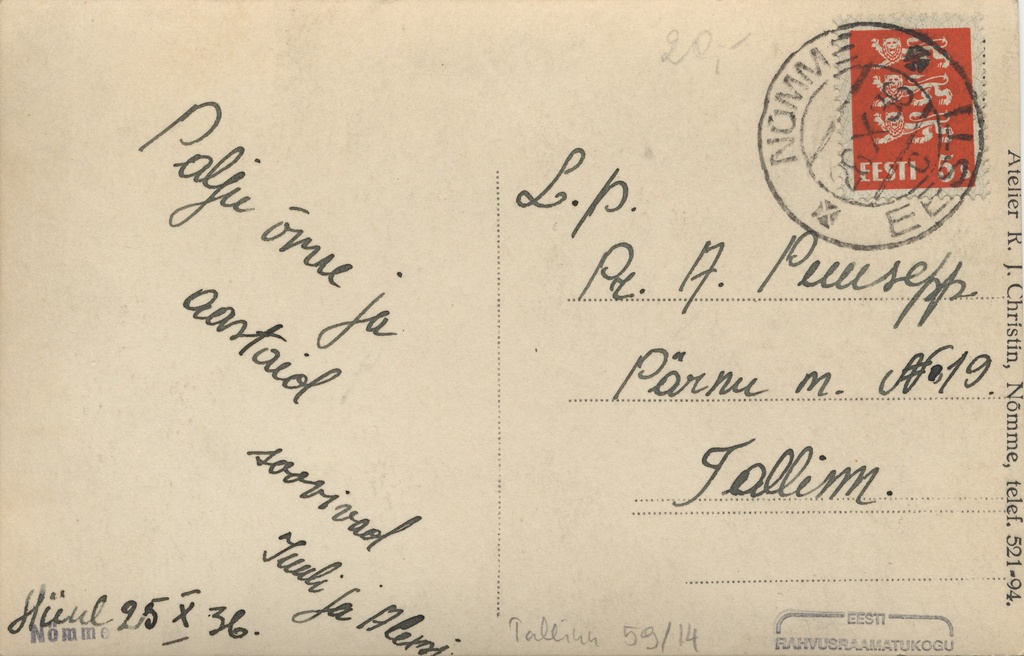 20,-
NÕMME
EESTI
EESTI 5 s
Palju õnne ja
aastaid
soovivad
Juuli ja Alexsi
25 X 36.
Nõmme
L. p.
Pr. A. Puusepp
Pärnu m. No 19.
Tallinn.
Atelier K. J. Christin, Nõmme, telef. 521-94.
Tallinn 59/14
EESTI
RAHVUSRAAMATUKOGU